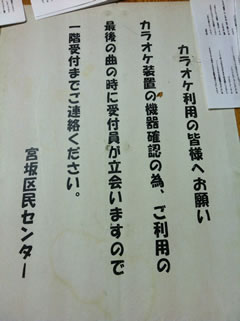 カラオケ利用の皆様へお願い
カラオケ装置の機器確認の為、ご利用の
最後の曲の時に受付員が立会いますので
一階受付までご連絡ください。
宮坂区民センター